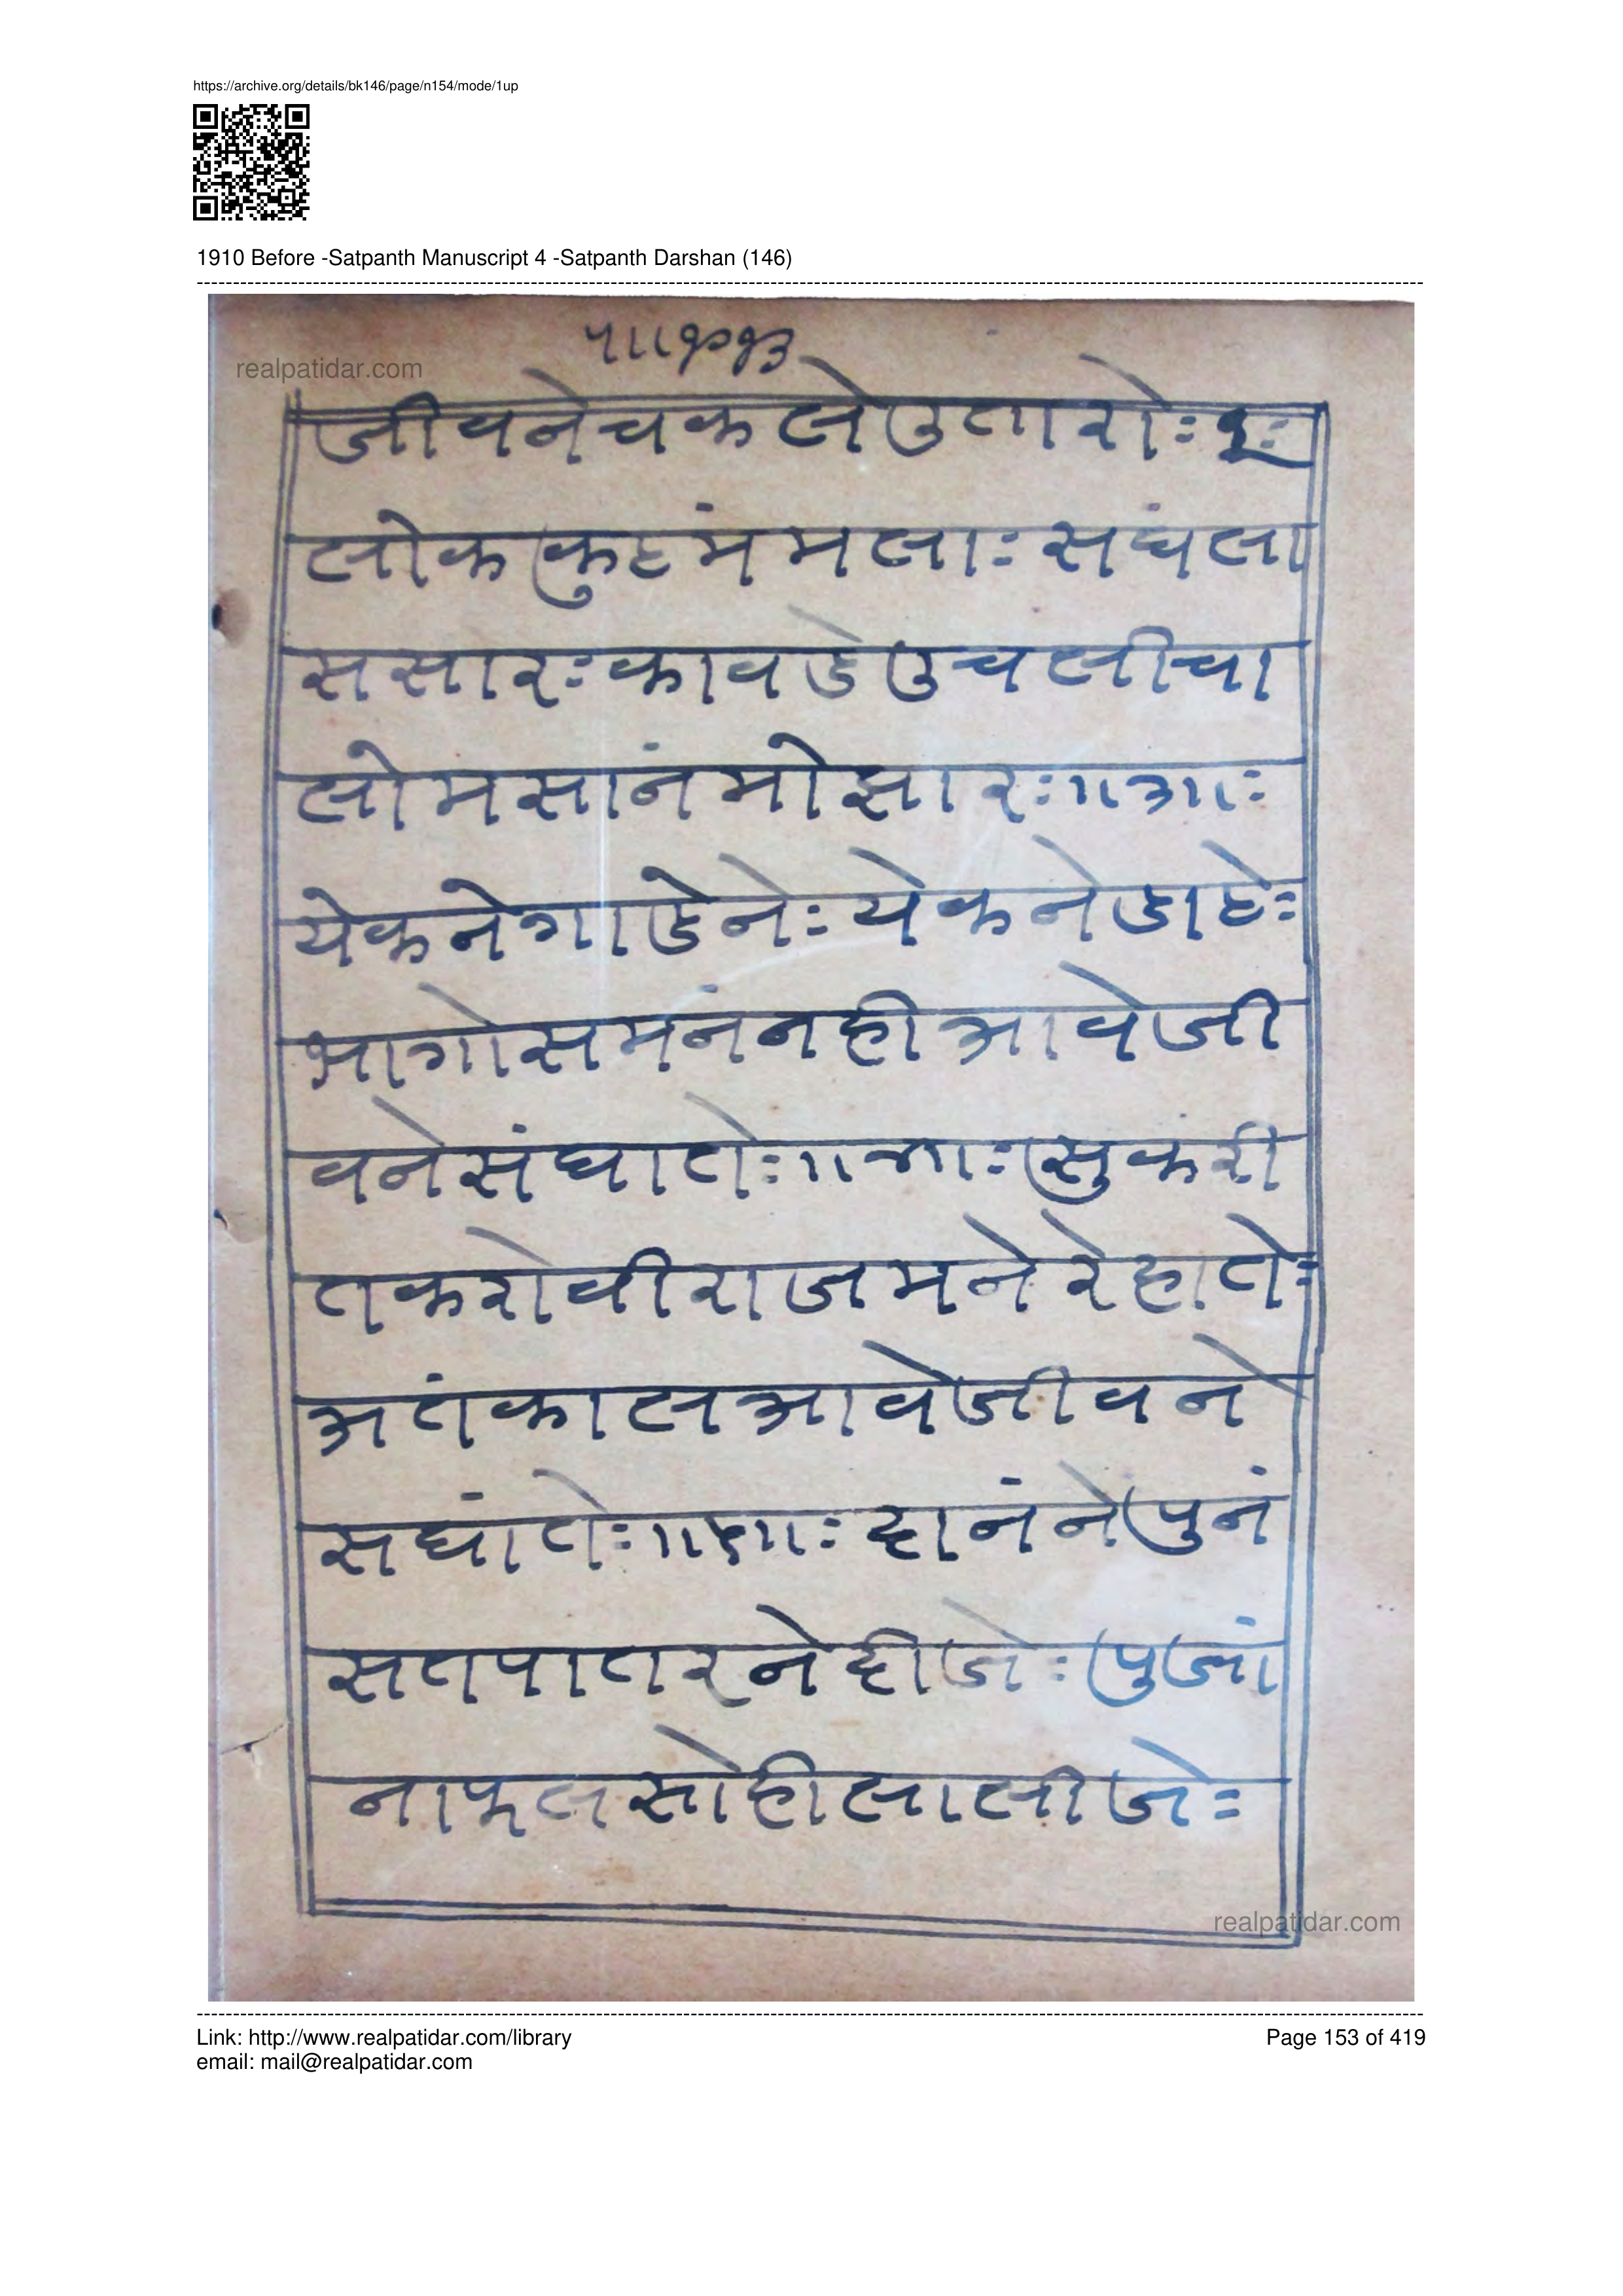 https://archive.org/details/bk146/page/n154/mode/1up
1910 Before -Satpanth Manuscript 4 -Satpanth Darshan (146)
realpatidar.com
जीवनेचकलेउतारोः २ः
लोककुटमंमलाः सघंला
ससारः कावडेउचलीचा
लोमसानंमोझारः ॥३॥ः
येकनेगाडेनेः येकनेडाटेः
भागोसमंनंनहीआवेजी
वनेसंघातेः ॥४॥ः सुकंरी
तकरोवीराजमनेरेहातेः
अतंकालआवेजीवने
सघांतेः ॥५॥ः दानंनेपुनं
सतपातरनेदीजेः पुजां
नाफलसोहीलालीजेः
realpatidar.com
Link: http://www.realpatidar.com/library
Page 153 of 419
email: mail@realpatidar.com